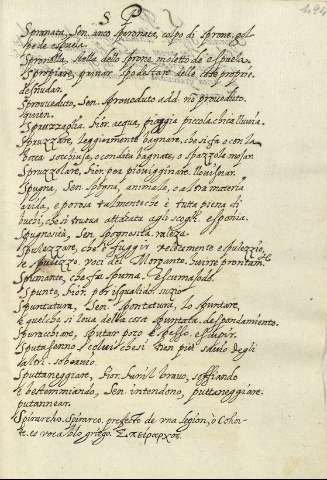 S P
Spronata, Sen. anco speronata, colpo di sprone. gol-
pe de espuela.
Spronella, stella dello sprone. moletto de espuela.
Spropiare, quinar. spodestare delle cose proprie.
desnudar.
Sproveduto, Sen. sproveduto add. no proveduto.
Spruzzaglia. Fior. acqua, pioggia piccola, chica lluvia.
Spruzzare, leggiermente bagnare, che si fa o con la
bocca socchiusa, o con dita bagnate, o spazzola mojar.
Spruzzolare, Fior. poa piovigginare. llovisnar.
Spugna, Sen. sponga, animale, o altra materia
arida, e porosa talmente che è tutta piena di
buchi, che si truova attacata agli scogli esponja.
Spugnosità, Sen. spognosità raleza.
Spulezzare, che è fuggir velocemente e spulezzio,
e spulezzo. voci del Morgante. huirse prontam.te
Spumante, che fa spuma. Escumasodo.
Spunto, Fior. per isqualido. suzio
Spuntatura, Sen. spontatura, lo spuntare,
e quel che si leva della cosa spuntata. despuntamiento.
Spurachiare, sputar poco e spesso. escupir.
Sputasenno, scelui che si tien più savio degli
altri. soberbio.
Sputtaneggiare, Fior. farsi il bravo, soffiando
e bestemmiando, Sen. intendono, puttaneggiare.
putannear.
Spirarcho. Spirarco. prefecto de vna legion, ò Cohor-
te. es vocablo griego. Σπειραρχος.